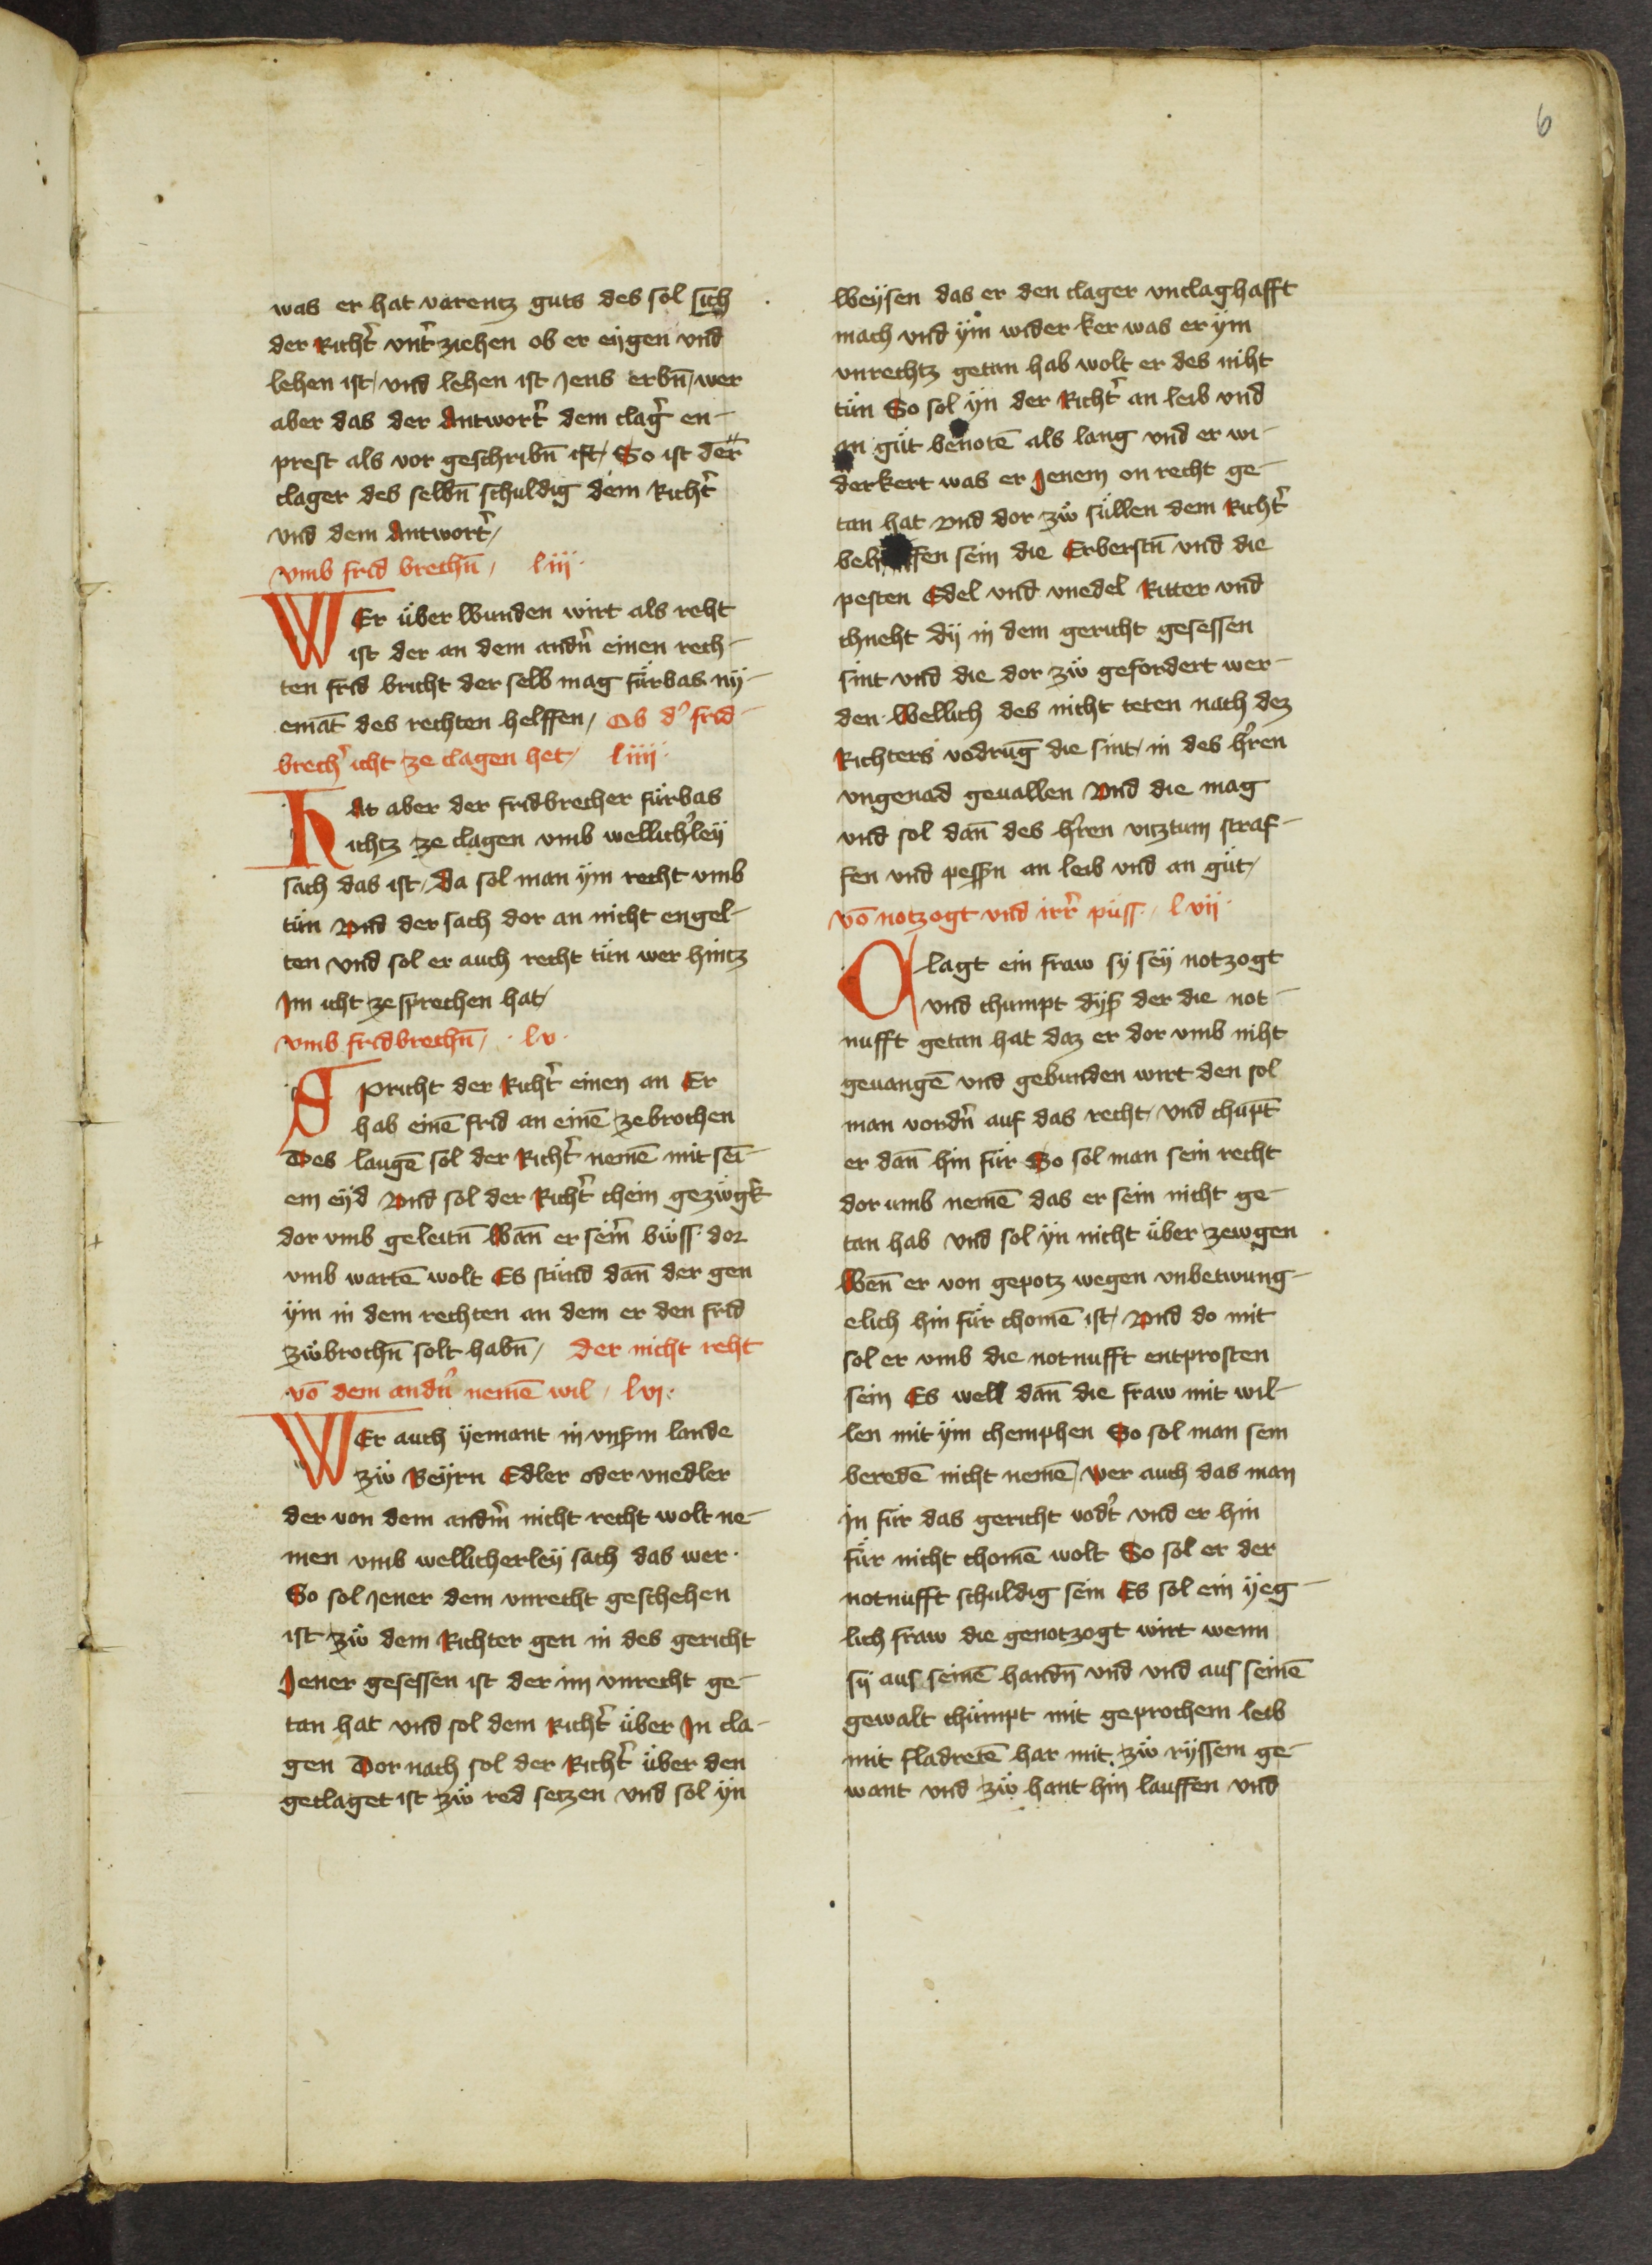 6
was er hat varentz guts des sol sich
der Richt̄ vnt̄ ziehen ob er eygen vnd
lehen ist / vnd lehen ist Jens erbn̄ / wer
aber das der Antwort̄ dem claḡ en-
prest als vor geschribn̄ ist / So ist der
clager des selbn̄ schuldig dem Richt̄
vnd dem Antwort̄ /
vmb frid brechn̄ / liij ·
WEr über wunden wirt als reht
ist der an dem andn̄ einen rech-
ten frid bricht der selb mag fürbas ny-
emāt des rechten helffen / Ob d' frid-
brech̄ icht ze clagen het / liiij ·
Hat aber der fridbrecher fürbas
ichtz ze clagen vmb wellich̄ley
sach das ist / Da sol man ym recht vmb
tün Vnd der sach dor an nicht engel-
ten vnd sol er auch recht tün wer hintz
Im icht ze sprechen hat /
vmb fridbrechn̄ / · lv ·
Spricht der Richt̄ einen an Er
hab einē frid an einē zebrochen
Des laugē sol der Richt̄ nemē mit sei-
em eyd Vnd sol der Richt̄ chein gezwgk
dor vmb geleitn̄ Wan̄ er sein̄ bwss dor
vmb wartē wolt Es stünd dan̄ der gen
ym in dem rechten an dem er den frid
zwbrochn̄ solt habn̄ / der nicht reht
vō dem andn̄ nemē wil / lvj ·
WEr auch yemant in vnsm̄ lande
zw Beyrn Edler oder vnedler
der von dem andm̄ nicht recht wolt ne-
men vmb wellicherley sach das wer ·
So sol Jener dem vnrecht geschehen
ist zw dem Richter gen in des gericht
Jener gesessen ist der im vnrecht ge-
tan hat vnd sol dem Richt̄ über In cla-
gen Dor nach sol der Richt̄ über den
geclaget ist zw red setzen vnd sol yn
Weysen das er den clager vnclaghafft
mach vnd ym wider ker was er ym
vnrechtz getan hab wolt er des niht
tün So sol yn der Richt̄ an leib vnd
an güt benotē als lang vnd er wi-
derkert was er Jenem on recht ge-
tan hat Vnd dor zw süllen dem Richt̄
sein die Erberstn̄ vnd die
pesten Edel vnd vnedel Ritter vnd
chneht dy in dem gericht gesessen
sint vnd die dor zw gefordert wer-
den · Wellich des nicht teten nach dez
Richters vodrūg die sint / in des h̄ren
vngenad geuallen Vnd die mag
vnd sol dan̄ des h̄ren viztum straf-
fen vnd pessn̄ an leib vnd an güt /
vō notzogt vnd irr̄ püss · / lvij ·
Clagt ein fraw sy sey notzogt
vnd chumpt dyß der die not-
nufft getan hat daz er dor vmb niht
geuangē vnd gebunden wirt den sol
man vordn̄ auf das recht / vnd chūpt
er dan̄ hin für So sol man sein recht
dor umb nemē das er sein nicht ge-
tan hab vnd sol yn nicht über zewgen
Wen̄ er von gepotz wegen vnbetwung-
elich hin für chomē ist / Vnd do mit
sol er vmb die notnufft entprosten
sein Es well dan̄ die fraw mit wil-
len mit ym chemphen So sol man sein
beredē nicht nemē / Wer auch das man
in für das gericht vodt̄ vnd er hin
für nicht chomē wolt So sol er der
notnufft schuldig sein Es sol ein yeg-
lich fraw die genotzogt wirt wenn
sy aus seinē handn̄ vnd vnd aus seinē
gewalt chümpt mit geprochem leib
mit fladretē har mit zw ryssem ge-
want vnd zw hant hin lauffen vnd